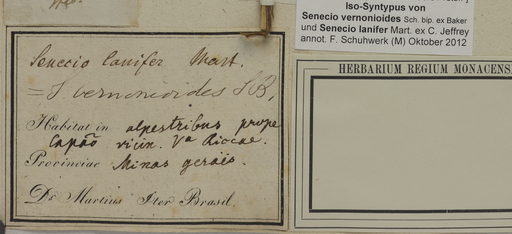 Iso-Syntypus von
Senecio vernonioides Sch. bip. ex Baker
und Senecio lanifer Mart. ex C. Jeffrey
annot. F. Schuhwerk (M) Oktober 2012
HERBARIUM REGIUM MONACENS
Senecio lanifer Mart.
= S vernonioides SB,
Habitat in alpestribus prope
Capão vicin. Va Riccae.
Provinciae Minas geraës.
Dr. Martius Iter Brasil.